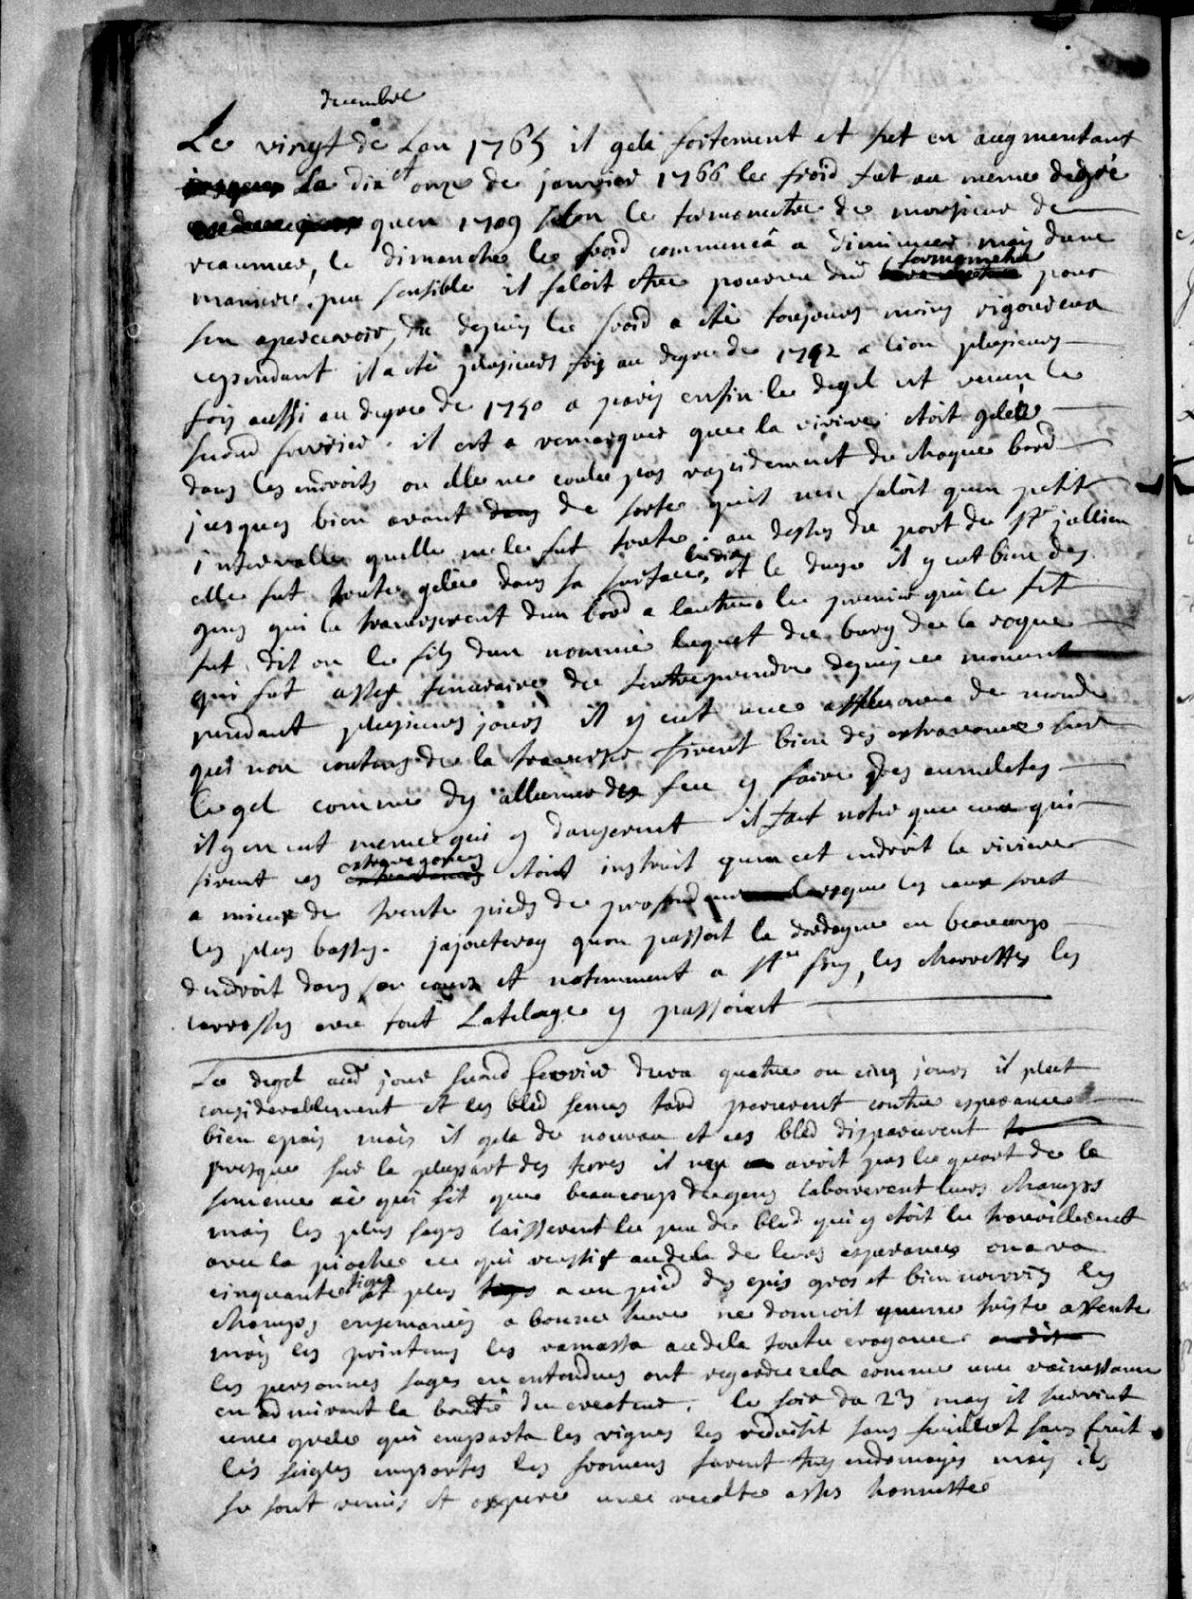 decembre
Le vingt de Lan 1765 il gela fortement et fut en augmentant
Le dix et onze de janvier 1766 le froid fut au meme degré
quen 1709 selon le termometre de monsieur de
reaumur, le dimanche le froid commença a diminuer mais dune
maniere peu sensible il faloit etre pourveu dun termometre pour
sen apercevoir, depuis le froid a eté toujours moins rigoureux
cependant il a eté plusieurs fois au degre de 1742 a lion plusieurs
fois aussi au degre de 1740 a paris enfin le degel est venu le
second fevrier. il est a remarquer que la riviere etoit gelée
dans les endroits ou elle ne coule pas rapidement de chaque bord
jusques bien avant de sorte quil nen faloit quun petit
intervalle quelle ne le fut toute. au dessus du port de st jullien
elle fut toute gelée dans sa surface, et le it y eut bien des
gens qui la traverserent dun bord a lautre le premier qui le fit
fut dit on le fils dun nommé du bourg de la roque
qui fut assez temeraire de lentreprendre depuis ce moment
pendant plusieurs jours il y eut une affluence de monde
qui non contens de la traverser firent bien des extravances sur
le gel comme dy allumer des feu y faire des aumeletes
il y en eut meme qui y danserent il faut noter que ceux qui
firent ces extravagances etoint instruit quen cet endroit la riviere
a mieux de trente pieds de profondeur lorsque les eaux sont
les plus basses. jajouteray quon passoit la dordogne en beaucoup
dendroit dans son cours et notemment a ste foy, les charrettes les
carrosses avec tout Latelage y passoint
Le degel aud jour second fevrier dura quatre ou cinq jours il plut
considerablement et les bled semes tard parurent contre esperance
bien epais mais il gela de nouveau et ces bled disparurent
presque sur la plupart des terres il ny avoit pas le quart de la
semence ce qui fit que beaucoup de gens labourerent leurs champs
mais les plus sages laisserent le peu de bled qui y etoit le travaillerent
avec la pioche ce qui reussit audela de leurs esperances on a vu
cinquante tiges et plus a un pied des epis gros et bien nourris les
champs, ensemancés a bonne heure ne donnoit quune triste attente
mais les printems les ramassa audela toute croyance
les personnes sages en entendues ont regardé cela comme une renaissance
en admirant la bonté du createur. le soir du 23 may il survint
une grele qui emporta les vignes les reduisit sans feuille et sans fruit
les seigles emportés les fromens furent tres endomagés mais ils
se sont remis et espere une recolte asses honnette